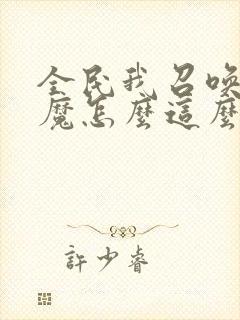 全民我召唤
魔怎麼這麼
許少睿